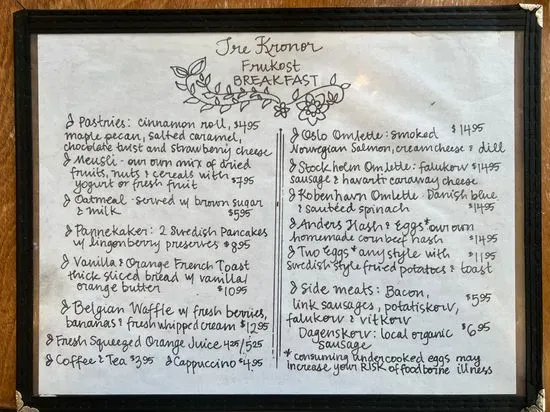 Tre Kronor
Frukost
BREAKFAST
Pastries: cinnamon roll, $4.95
maple pecan, salted caramel,
chocolate twist and strawberry cheese
Meusli - our own mix of dried
fruits, nuts & cereals with
yogurt or fresh fruit $7.95
Oatmeal - served w/ brown sugar
& milk $5.95
Pannekaker: 2 Swedish Pancakes
w/ lingonberry preserves $8.95
Vanilla & Orange French Toast
thick sliced bread w/ vanilla/
orange butter $10.95
Belgian Waffle w/ fresh berries,
bananas & fresh whipped cream $12.95
Fresh Squeezed Orange Juice 4.25/5.25
Coffee & Tea $3.95 Cappuccino $4.95
Oslo Omlette: smoked $14.95
Norwegian Salmon, cream cheese & dill
Stockholm Omlette: falukorv $14.95
sausage & havarti caraway cheese
Kobenhavn Omlette - Danish blue
& sautéed spinach $14.95
Anders Hash & Eggs* our own
homemade corn beef hash $14.95
Two Eggs* any style with $11.95
Swedish style fried potatoes & toast
Side meats: Bacon,
link sausages, potatiskorv, $5.95
falukorv & vitkorv
Dagenskorv: local organic $6.95
sausage
* consuming undercooked eggs may
increase your RISK of foodborne illness